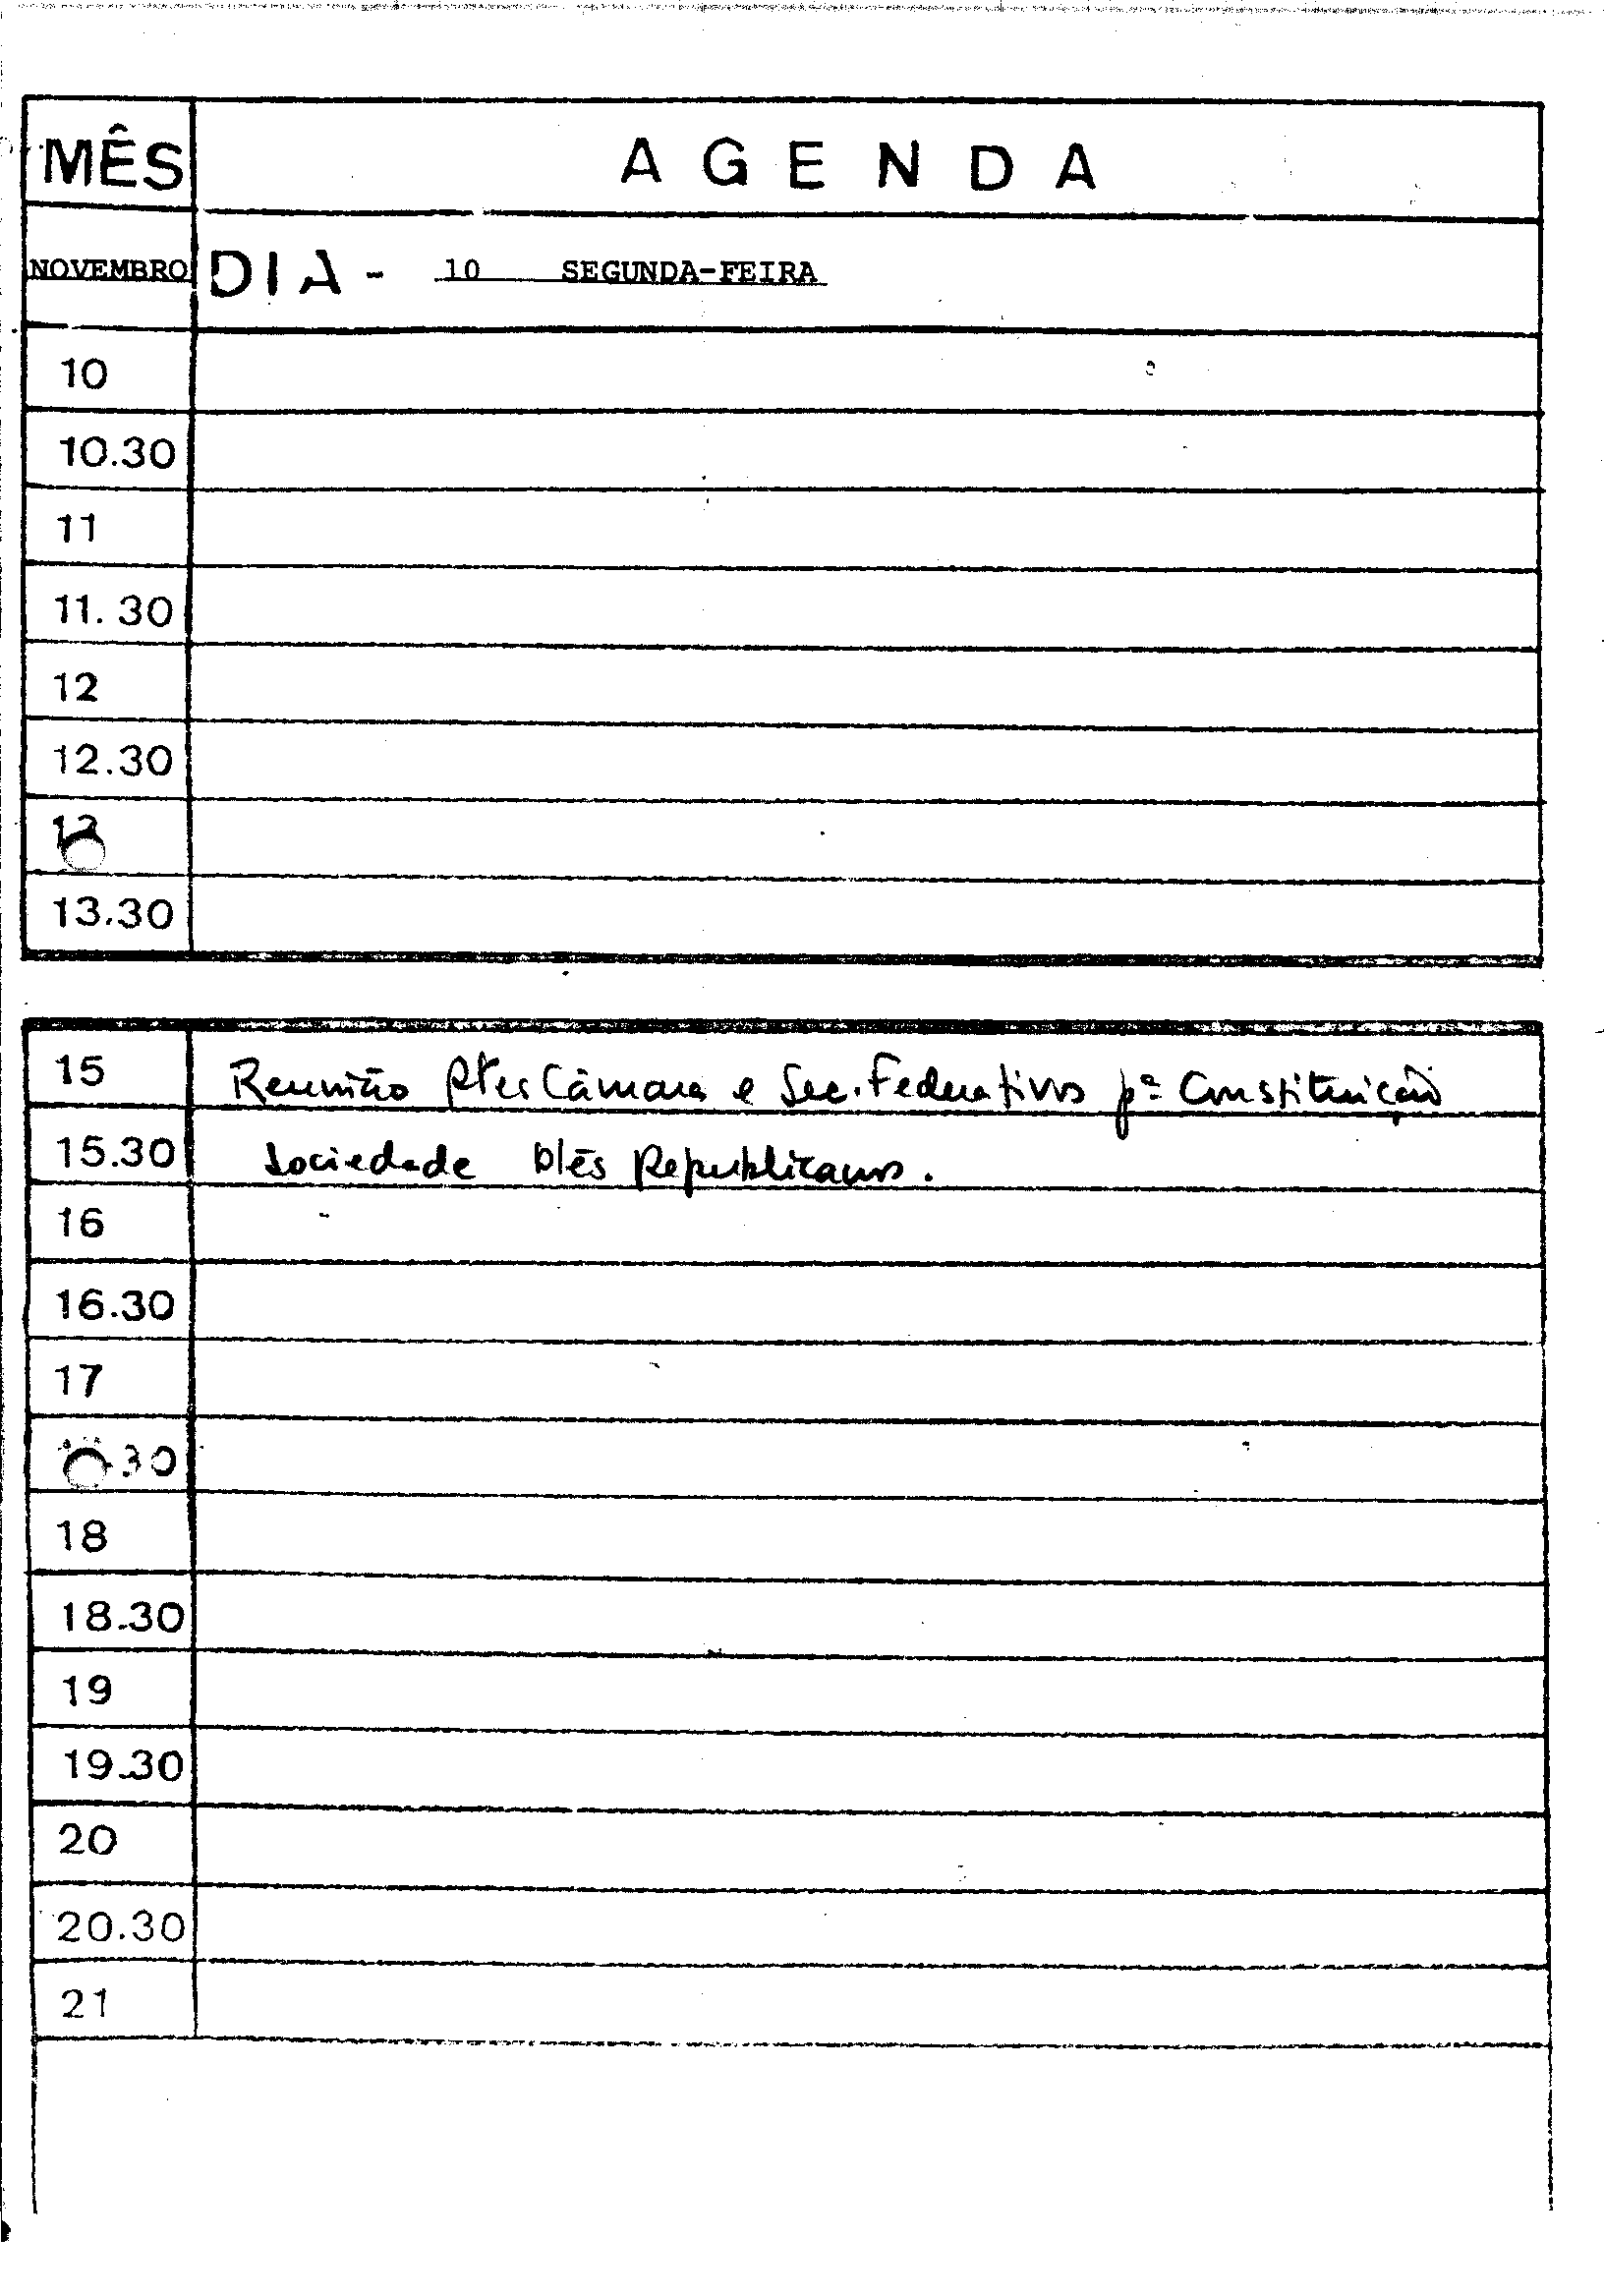 MÊS AGENDA
NOVEMBRO DIA - 10 SEGUNDA-FEIRA
10
10.30
11
11.30
12
12.30
13
13.30
15 Reunião Ptes Câmara e Sec. Federativos pª Constituição
15.30 Sociedade Republicanos.
16
16.30
17
.30
18
18.30
19
19.30
20
20.30
21